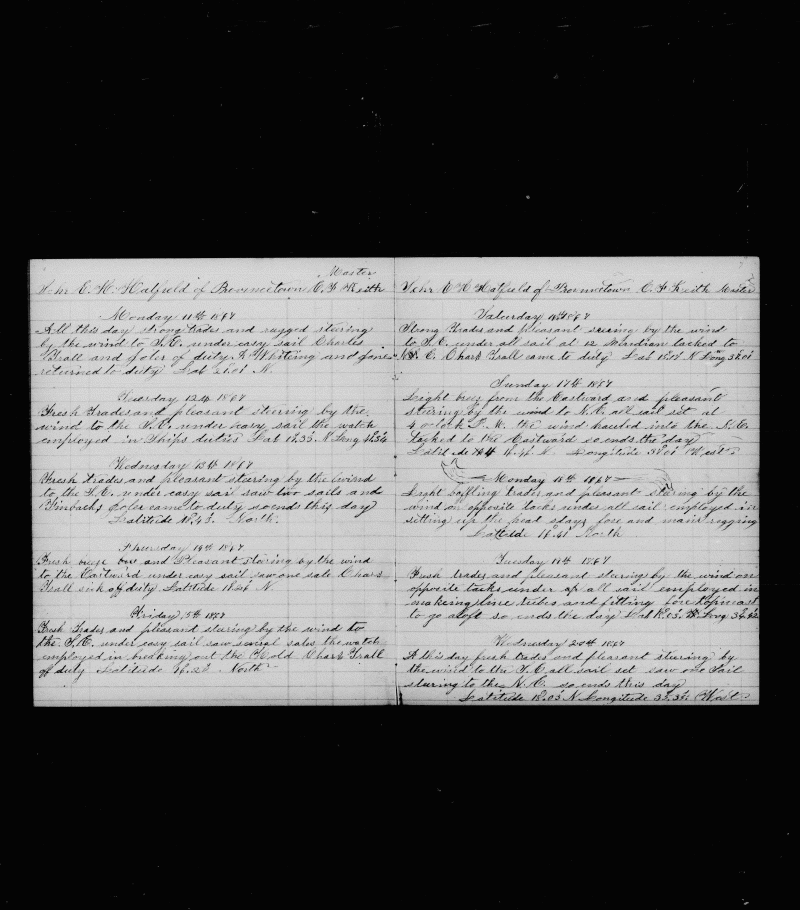 Master
Schr E. H. Hatfield of Provincetown C. F. Keith
Monday 11th 1867
All this day strong trades and rugged steering
by the wind to S.E. under easy sail Charles
Yrall and of duty. Whiting and Jones
returned to duty Lat N.
Tuesday 12th 1867
Fresh Trades and pleasant steering by the
wind to the S.E. under easy sail the watch
employed in Ships duties Lat N Long
Wednesday 13th 1867
Fresh trades and pleasant steering by the wind
to the S.E. under easy sail saw two sails and
came to duty so ends this day
Latitude North.
Thursday 14th 1867
Fresh and Pleasant steering by the wind
to the Eastward under easy sail saw one sale Chars
Yrall sick off duty Latitude N
Friday 1867
Fresh Trades and pleasant steering by the wind to
the S.E. under easy sail saw several sales the watch
employed in breaking out the Hold Chars Yrall
off duty Latitude North
Schr E H Hatfield of Provincetown C. F Keith Master
Saturday 1867
Strong Trades and pleasant steering by the wind
to S.E. under all sail at 12 Meridian tacked to
N.E. Chars Yrall came to duty Lat N Long
Sunday 17th 1867
Light breez from the Eastward and pleasant
steering by the wind to N.E. all sail set at
4 oclock P.M. the wind hauled into the N.E.
tacked to the Eastward so ends the day
Latitude N. Longitude West
Monday 18th 1867
Light baffling trades and pleasant steering by the
wind on opposite tacks under all sail employed in
setting up the head stays fore and main rigging
Latitude North
Tuesday 19th 1867
Fresh trades and pleasant steering by the wind on
opposite tacks under of all sail employed in
makeing line tubes and fitting fore topmast
to go aloft so ends the day Lat N. Long
Wednesday 20th 1867
All this day fresh trads and pleasant stering by
the wind to the S.E all sail set saw one Sail
stering to the N.E. so ends this day
Latitude 18.03 N Longitude West